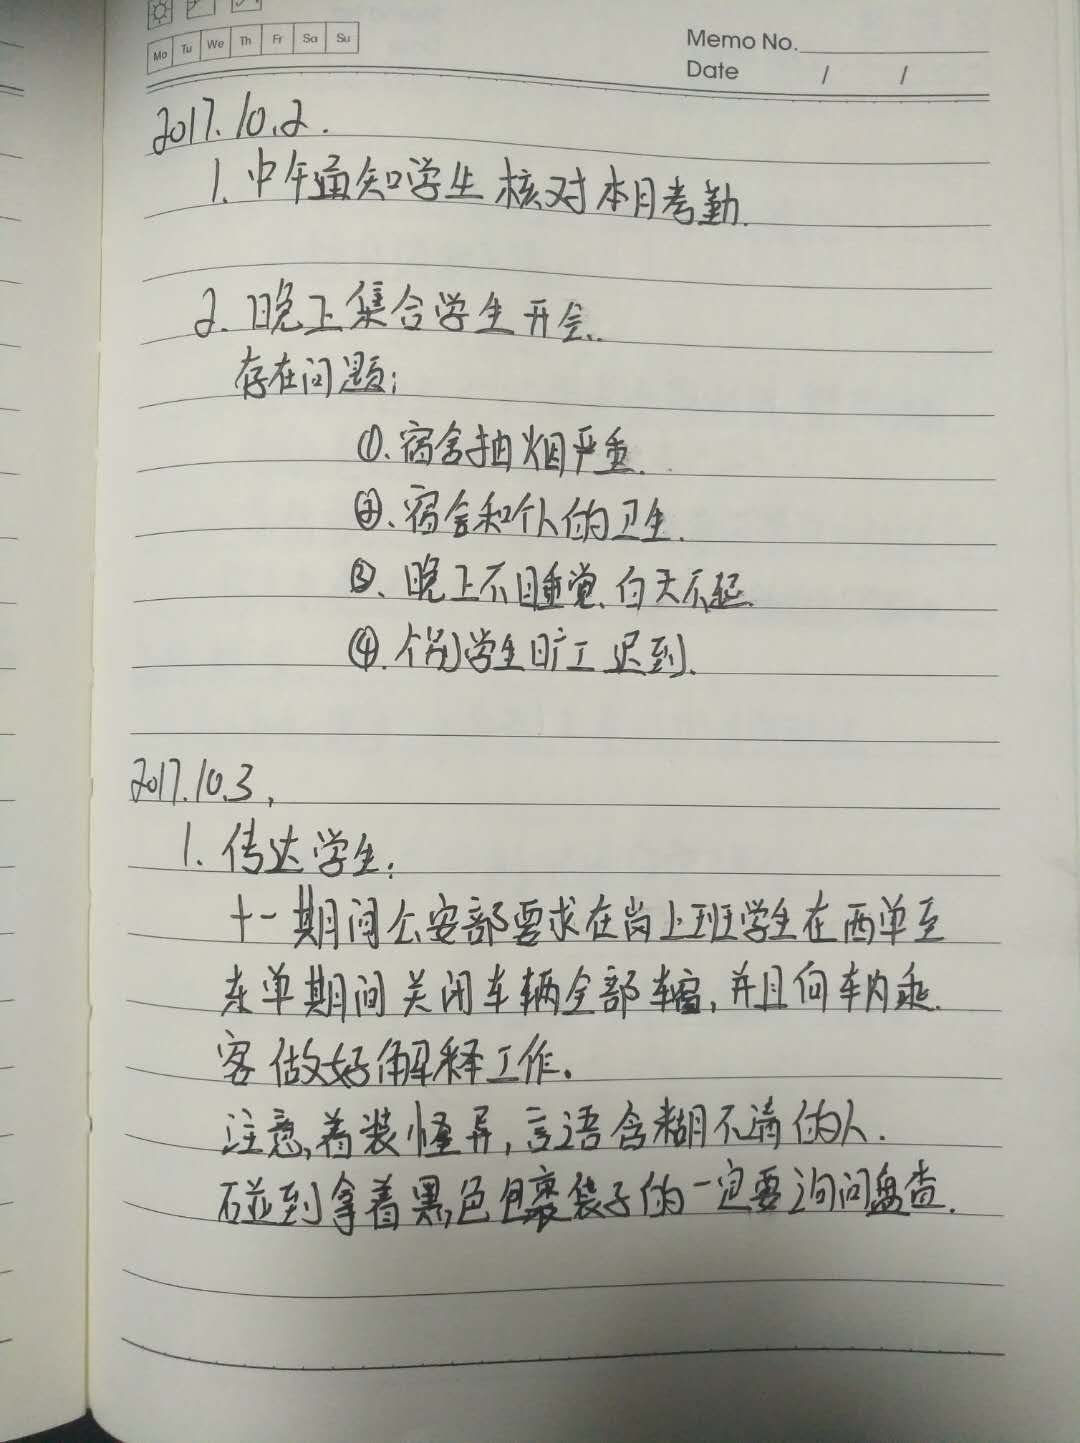 Mo Tu We Th Fr Sa Su
Memo No.
Date / /
2017.10.2.
1. 中午通知学生核对本月考勤.
2. 晚上集合学生开会.
存在问题:
①. 宿舍抽烟严重.
②、宿舍和个人的卫生.
③、晚上不睡觉、白天不起.
④. 个别学生旷工迟到.
2017.10.3,
1. 传达学生:
十一期间公安部要求在岗上班学生在西单至
东单期间关闭车辆全部车窗,并且向车内乘
客做好解释工作.
注意,着装怪异,言语含糊不清的人.
碰到拿着黑色包裹袋子的一定要询问盘查.